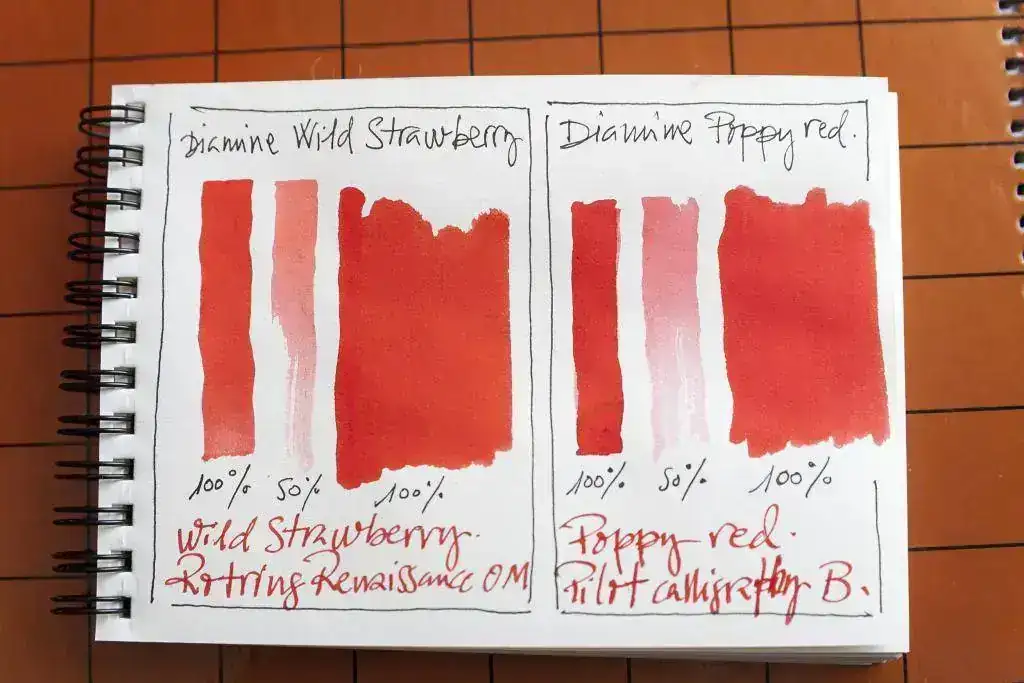 Diamine Wild Strawberry
100% 50% 100%
Wild Strawberry.
Rotring Renaissance OM
Diamine Poppy red.
100% 50% 100%
Poppy red.
Pilot calligraphy B.